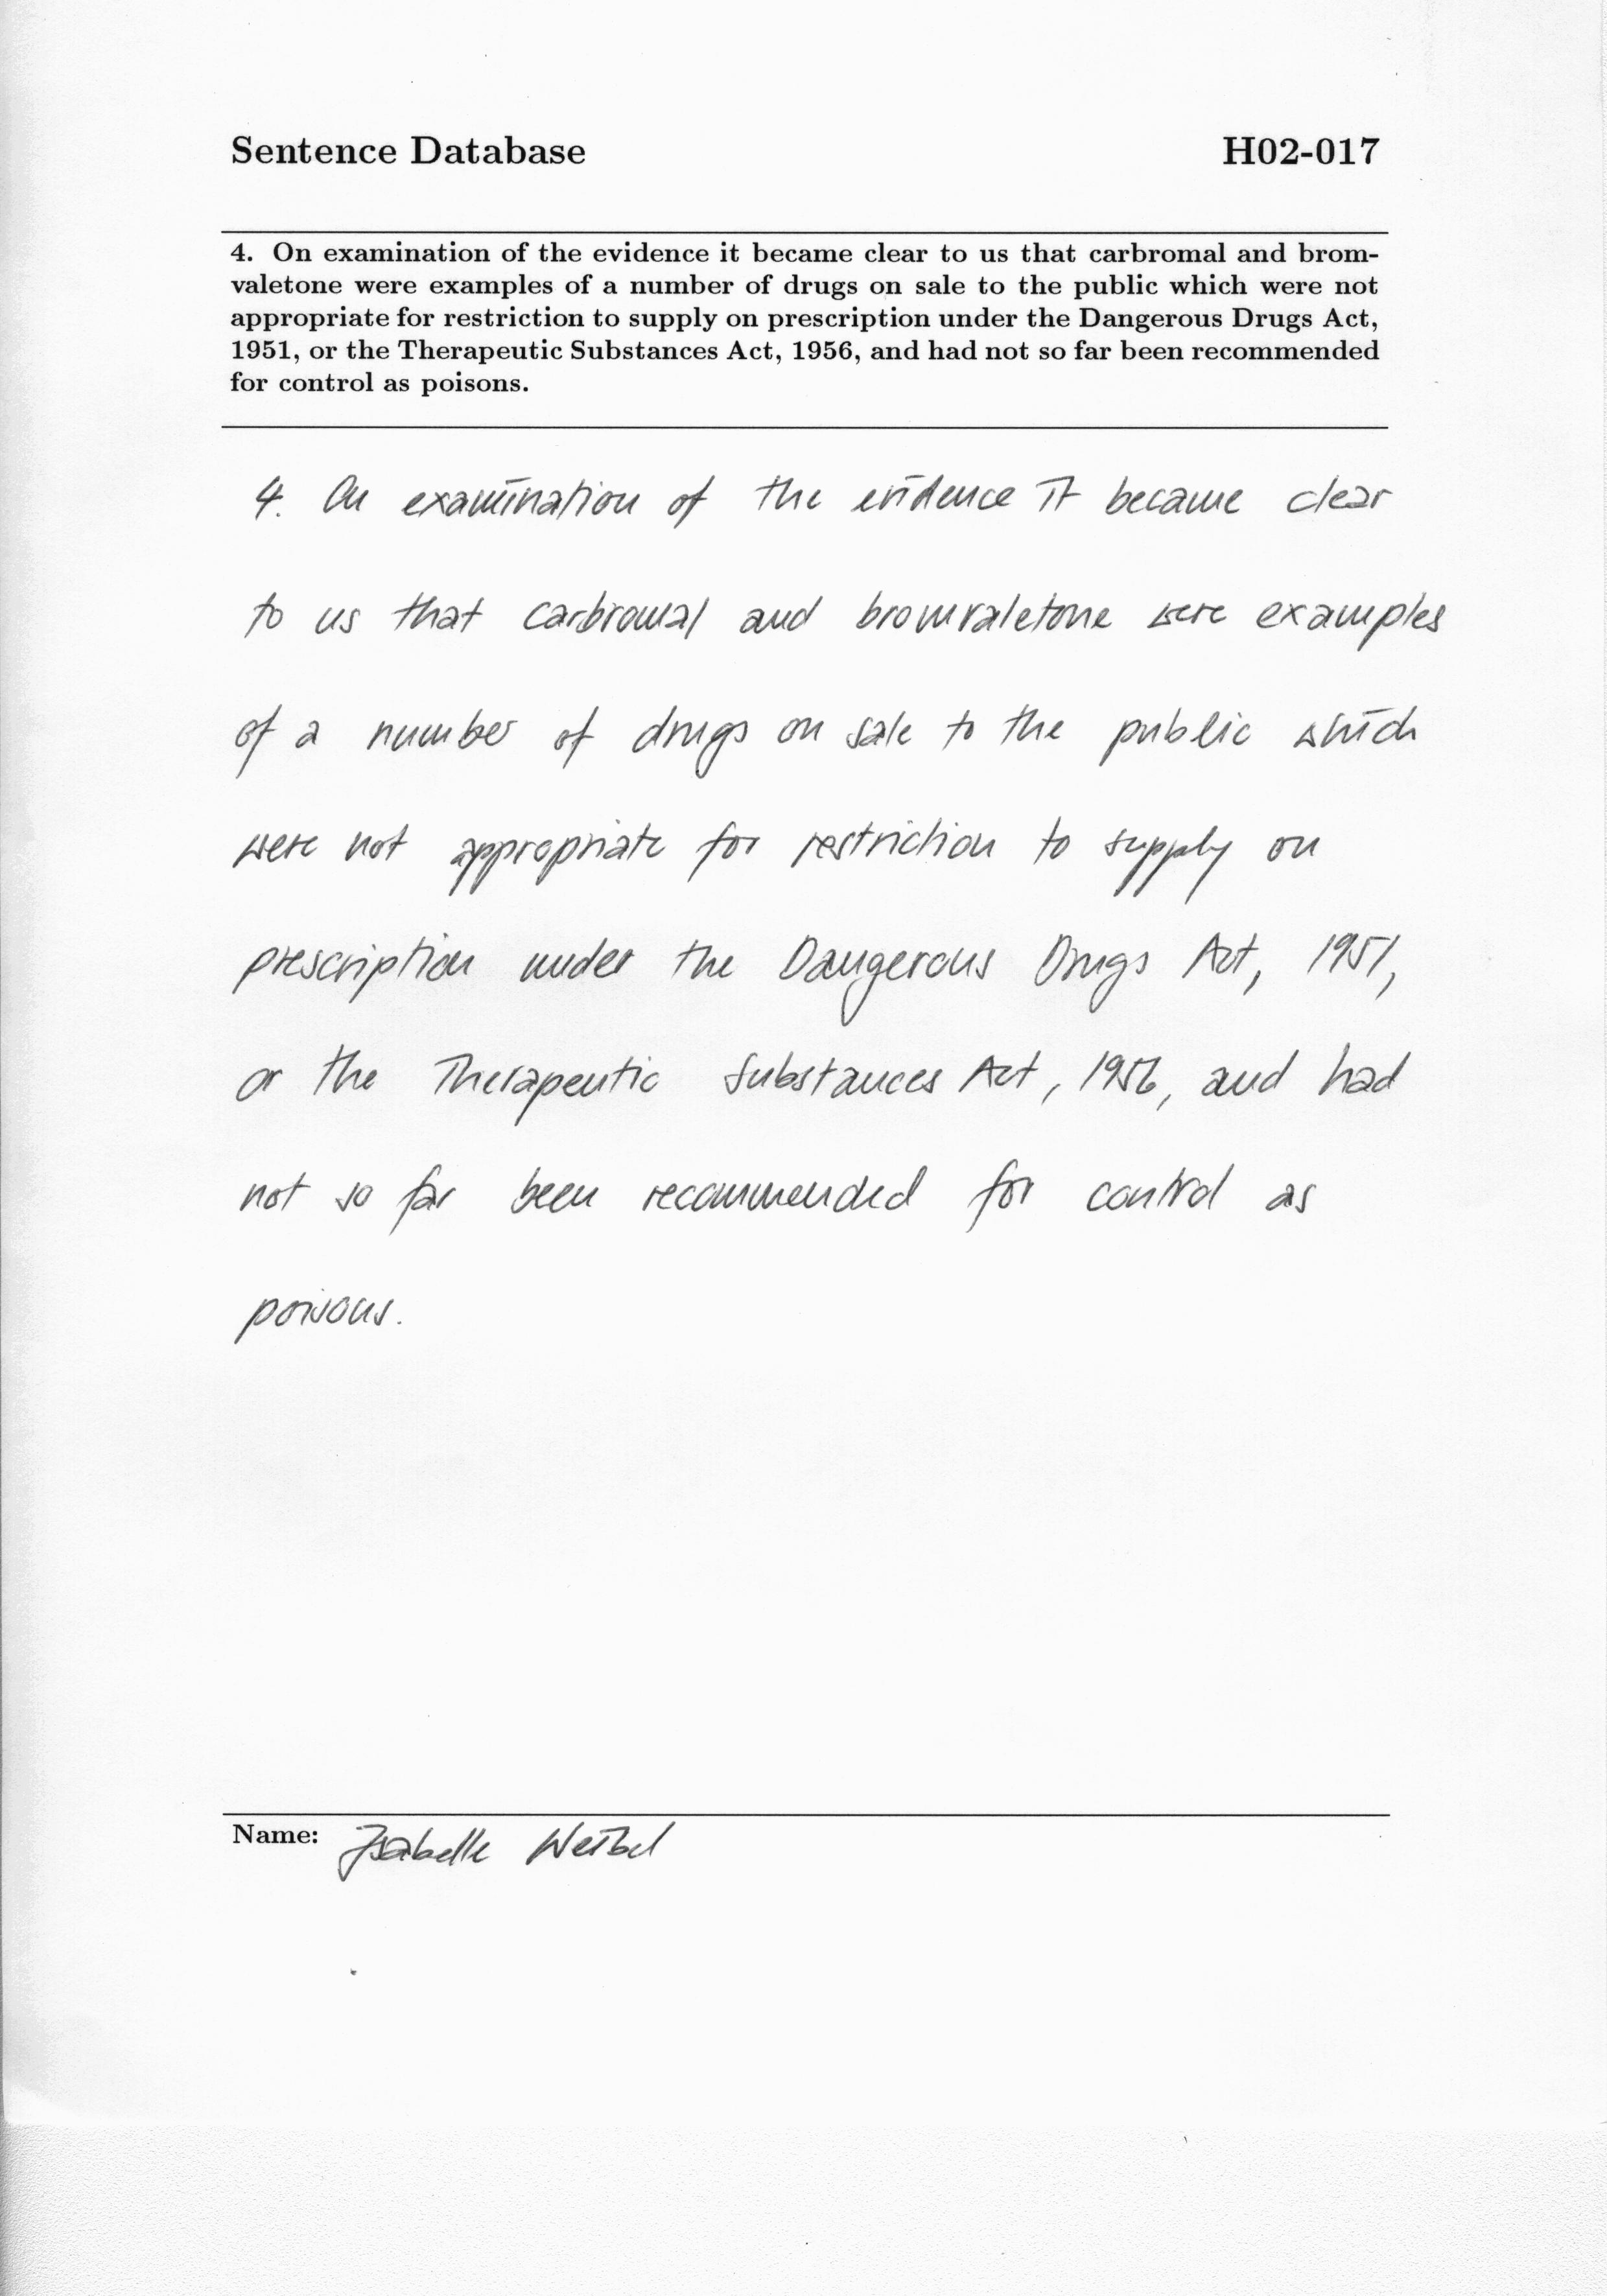 Sentence Database H02-017
4. On examination of the evidence it became clear to us that carbromal and brom-
valetone were examples of a number of drugs on sale to the public which were not
appropriate for restriction to supply on prescription under the Dangerous Drugs Act,
1951, or the Therapeutic Substances Act, 1956, and had not so far been recommended
for control as poisons.
4. On examination of the evidence it became clear
to us that carbromal and bromvaletone were examples
of a number of drugs on sale to the public which
were not appropriate for restriction to supply on
prescription under the Dangerous Drugs Act, 1951,
or the Therapeutic Substances Act, 1956, and had
not so far been recommended for control as
poisons.
Name: Isabelle Weibel